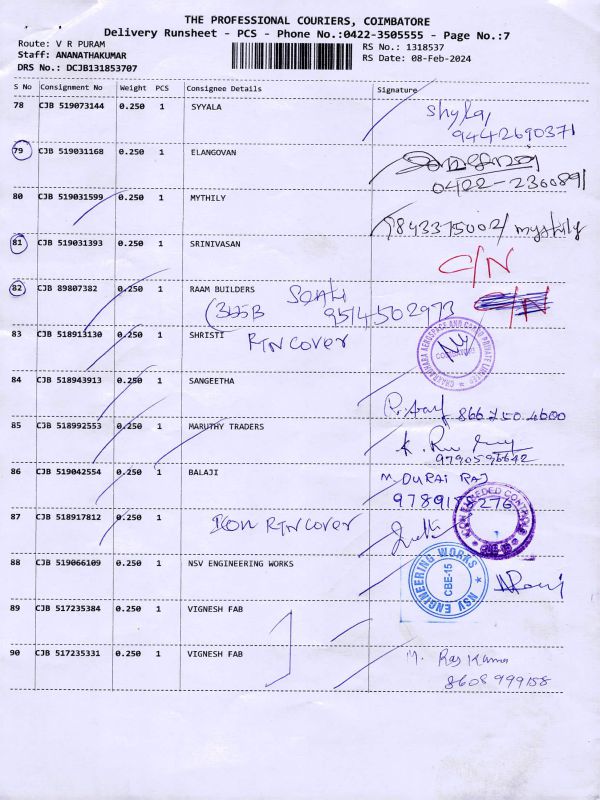 THE PROFESSIONAL COURIERS, COIMBATORE
Delivery Runsheet - PCS - Phone No.:0422-3505555 - Page No.:7
Route: V R PURAM
Staff: ANANATHAKUMAR
DRS No.: DCJB131853707
RS No.: 1318537
RS Date: 08-Feb-2024
S No Consignment No Weight PCS Consignee Details Signature
78 CJB 519073144 0.250 1 SYYALA
9442690371
79 CJB 519031168 0.250 1 ELANGOVAN
0422-236089
80 CJB 519031599 0.250 1 MYTHILY
9843375002/
81 CJB 519031393 0.250 1 SRINIVASAN
C/N
82 CJB 89807382 0.250 1 RAAM BUILDERS
(325B 9514502973 C/N
83 CJB 518913130 0.250 1 SHRISTI
RTN COVER
84 CJB 518943913 0.250 1 SANGEETHA
866 750 4600
85 CJB 518992553 0.250 1 MARUTHY TRADERS
9790596642
86 CJB 519042554 0.250 1 BALAJI M DURAI RAJ
87 CJB 518917812 0.250 1 RTN COVER
88 CJB 519066109 0.250 1 NSV ENGINEERING WORKS
NSV ENGINEERING WORKS
CBE-15
89 CJB 517235384 0.250 1 VIGNESH FAB
90 CJB 517235331 0.250 1 VIGNESH FAB M. Raj Kumar
8608 999158